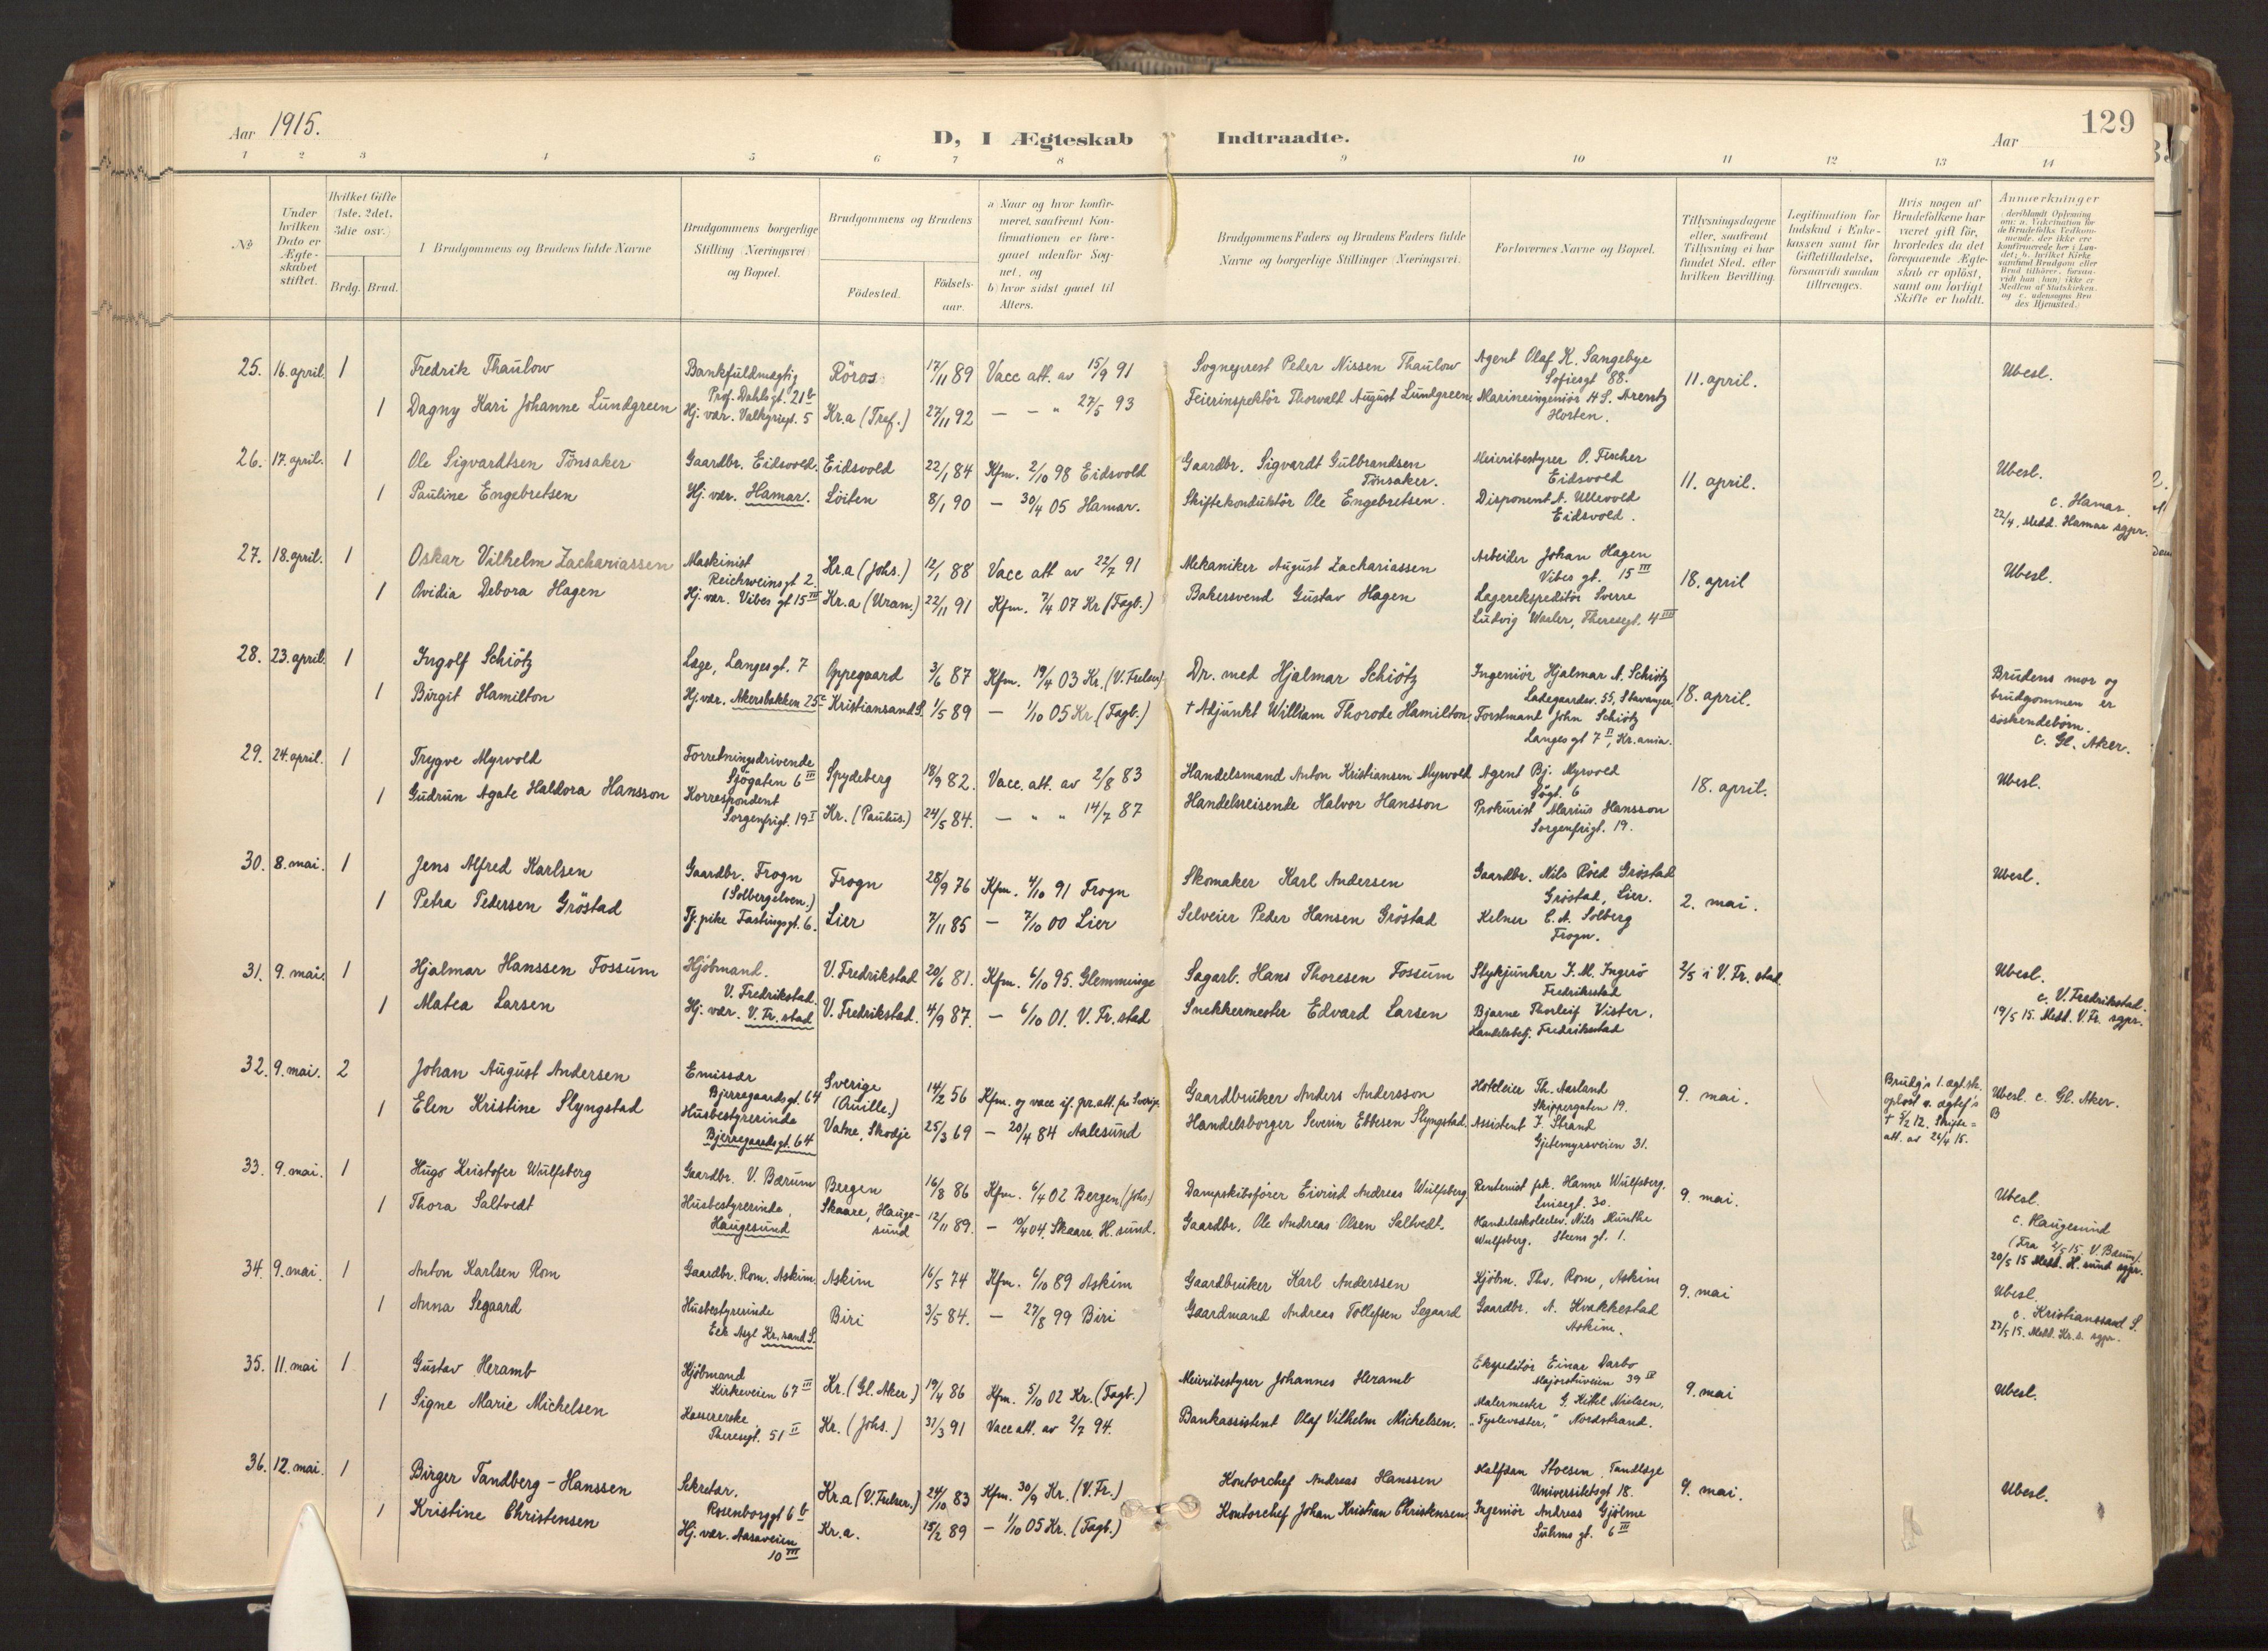 Aar 1915.
D, I Ægteskab Indtraadte.
Aar
129
1 2 3 4 5 6 7 8 9 10 11 12 13 14
No.
Under hvilken Dato er Ægteskabet stiftet.
Hvilket Gifte (1ste, 2det, 3die osv.)
Brdg. Brud.
I Brudgommens og Brudens fulde Navne
Brudgommens borgerlige Stilling (Næringsvei) og Bopæl.
Brudgommens og Brudens
Födested.
Födsels-aar.
a) Naar og hvor konfirmeret, saafremt Konfirmationen er foregaaet udenfor Sognet, og
b) hvor sidst gaaet til Alters.
Brudgommens Faders og Brudens Faders fulde Navne og borgerlige Stillinger (Næringsvei).
Forlovernes Navne og Bopæl.
Tillysningsdagene eller, saafremt Tillysning ei har fundet Sted, efter hvilken Bevilling.
Legitimation for Indskud i Enkekassen samt for Giftetilladelse, forsaavidt saadan tiltrænges.
Hvis nogen af Brudefolkene har været gift för, hvorledes da det foregaaende Ægteskab er oplöst, samt om lovligt Skifte er holdt.
Anmærkninger
(deriblandt Oplysning om: a. Vakcination for de Brudefolks Vedkommende, der ikke ere konfirmerede her i Landet; b. hvilket Kirkesamfund Brudgom eller Brud tilhörer, forsaavidt han (hun) ikke er Medlem af Statskirken, og c. udensogns Brudes Hjemsted.)
25. 16. april. 1 Fredrik Thaulow Bankfuldmægtig Prof. Dahls gt. 21b Röros 17/11 89 Vacc att. av 15/9 91 Sogneprest Peder Nissen Thaulow Agent Olaf K. Langebye Sofiesgt 88. 11. april. Ubesl.
1 Dagny Kari Johanne Lundgreen Hj. vær. Valkyriegt. 5 Kr.a (Tref.) 27/11 92 — - " 27/5 93 Feierinspektör Thorvald August Lundgreen, Marineingeniör H S. Arentz Horten.
26. 17. april. 1 Ole Sigvardtsen Tönsaker Gaardbr. Eidsvold. Eidsvold 22/1 84 Kfm. 2/10 98 Eidsvold Gaardbr. Sigvardt Gulbrandsen Tönsaker. Meieribestyrer O. Fischer Eidsvold 11. april. Ubesl.
1 Pauline Engebretsen Hj. vær. Hamar. Löiten 8/1 90 — 30/4 05 Hamar. Skiftekonduktör Ole Engebretsen. Disponent A. Ullevold Eidsvold. c. Hamar.
22/4. Medd. Hamar sgpr.
27. 18. april. 1 Oskar Vilhelm Zachariassen Maskinist Reichweinsgt 2. Kr.a (Johs.) 12/1 88 Vacc att av 22/7 91 Mekaniker August Zachariassen Arbeider Johan Hagen Vibes gt. 15 III 18. april Ubesl.
1 Ovidia Debora Hagen Hj. vær. Vibes gt 15 III Kr.a (Uran.) 22/11 91 Kfm. 7/4 07 Kr (Fagb.) Bakersvend Gustav Hagen Lagerekspeditör Sverre Ludvig Waler, Theresegt. 4 III
28. 23. april. 1 Ingolf Schiötz Læge, Langes gt. 7 Oppegaard 3/6 87 Kfm. 19/4 03 Kr. (V. Frelser) Dr. med Hjalmar Schiötz Ingeniör Hjalmar A. Schiötz Ladegaardsv. 55, Stavanger. 18. april. Brudens mor og brudgommen er söskendebörn.
1 Birgit Hamilton Hj. vær. Akersbakken 25c Kristiansand S. 1/5 89 — 1/10 05 Kr. (Fagb.) † Adjunkt William Thorode Hamilton, Forstmand John Schiötz Langes gt 7 II, Kr.ania. c. Gl. Aker.
29. 24. april. 1 Trygve Myrvold Forretningsdrivende Sjögaten 6 III Spydeberg 18/9 82. Vacc. att. av 2/8 83 Handelsmand Anton Kristiansen Myrvold Agent Bj. Myrvold Sögt. 6 18. april. Ubesl.
1 Gudrun Agate Haldora Hansson Korrespondent Sorgenfrigt. 19 I Kr. (Paulus.) 24/5 84. — " " 14/7 87 Handelsreisende Halvor Hansson Prokurist Marius Hansson Sorgenfrigt. 19.
30. 8. mai. 1 Jens Alfred Karlsen Gaardbr. Frogn (Solbergelven.) Frogn 28/9 76 Kfm. 4/10 91 Frogn Skomaker Karl Andersen Gaardbr. Nils Röed Gröstad Gröstad, Lier. 2. mai. Ubesl.
1 Petra Pedersen Gröstad Tj. pike Fastingsgt. 6. Lier 7/11 85 — 7/10 00 Lier Selveier Peder Hansen Gröstad Kelner C. A. Solberg Frogn.
31. 9. mai. 1 Hjalmar Hanssen Fossum Kjöbmand. V. Fredrikstad. V. Fredrikstad 20/6 81. Kfm. 6/10 95. Glemminge Sagarb. Hans Thoresen Fossum Stykjunker J. M. Ingerö Fredrikstad 2/5 i V. Fr. stad Ubesl.
1 Matea Larsen Hj. vær. V. Fr. stad V. Fredrikstad. 4/9 87. — 6/10 01. V. Fr. stad Snekkermester Edvard Larsen Bjarne Thorleif Vister. Handelsbetj. Fredrikstad c. V. Fredrikstad.
19/5 15. Medd. V. Fr. sgpr.
32. 9. mai. 2 Johan August Andersen Emissær Bjerregaardsgt. 64 Sverige (Quille.) 14/2 56 Kfm. og vacc if. pr. att. fra Sverige Gaardbruker Anders Andersson Hoteleier Th. Aasland Skippergaten 19. 9. mai. Brudg's 1. ægt.sk. oplöst v. ægtef's † 5/2 12. Skifte=att. av 26/4 15. Ubesl. c. Gl. Aker.
B
1 Elen Kristine Slyngstad Husbestyrerinde Bjerregaardsgt. 64 Vatne, Skodje 25/3 69 — 20/4 84 Aalesund Handelsborger Severin Ebbesen Slyngstad. Assistent J. Strand Gjetemyrsveien 31.
33. 9. mai. 1 Hugo Kristofer Wulfsberg Gaardbr. V. Bærum Bergen 16/8 86 Kfm. 6/4 02 Bergen (Johs.) Dampskibsförer Eivind Andreas Wulfsberg Rentenist frk. Hanna Wulfsberg. Luisegt. 30. 9. mai. Ubesl.
1 Thora Saltvedt Husbestyrerinde, Haugesund Skaare, Haugesund 12/11 89. — 10/4 04. Skaare. H. sund. Gaardbr. Ole Andreas Olsen Saltvedt. Handelsskoleelev. Nils Munthe Wulfsberg. Steens gt. 1. c. Haugesund
(Fra 2/5 15. V. Bærum).
20/5 15 Medd. H. sund sgpr.
34. 9. mai. 1 Anton Karlsen Rom Gaardbr. Rom. Askim. Askim 16/5 74 Kfm. 6/10 89 Askim Gaardbruker Karl Anderssen Kjöbm. Thv. Rom, Askim 9. mai Ubesl.
1 Anna Segaard Husbestyrerinde Eek Asyl Kr. sand S. Biri 3/5 84. — 27/8 99 Biri Gaardmand Andreas Tollefsen Segaard Gaardbr. A. Kvakkestad Askim. c. Kristianssand S.
22/5 15. Medd. Kr. s. sgpr.
35. 11. mai 1 Gustav Heramb Kjöbmand Kirkeveien 67 III Kr. (Gl. Aker.) 19/4 86 Kfm. 5/10 02 Kr. (Fagb.) Meieribestyrer Johannes Heramb Ekspeditör Einar Darbo Majorstuveien 39 IV 9. mai Ubesl.
1 Signe Marie Michelsen Kassererske Theresegt. 51 II Kr. (Johs.) 31/3 91 Vacc att. av 2/7 94. Bankassistent Olaf Vilhelm Michelsen. Malermester G. Kittel Nielsen. Nordstrand.
36. 12. mai. 1 Birger Tandberg-Hanssen Sekretær. Rosenborggt 6b Kr.a (V. Frelser.) 24/10 83 Kfm. 30/9 Kr. (V. Fr.) Kontorchef Andreas Hanssen Halfdan Stoesen. Tandlæge Universitetsgt 18. 9. mai. Ubesl.
1 Kristine Christensen Hj. vær. Aasaveien 10 III Kr.a. 15/2 89 — 1/10 05 Kr. (Fagb.) Kontorchef Johan Kristian Christensen. Ingeniör Andreas Gjölme Suhms gt. 6 III